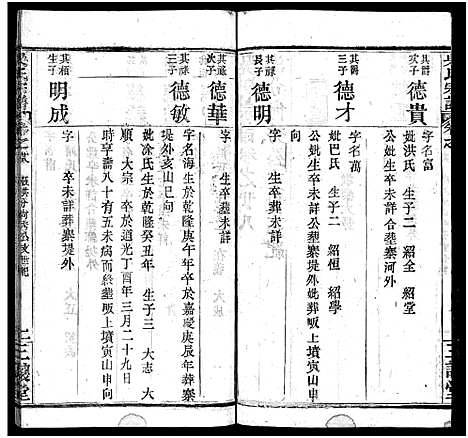 其爵次子
德貴
字名富
妣洪氏 生子二 紹全 紹堂
公妣生卒未詳合塟寨河外
其爵三子
德才
字名萬
妣巴氏 生子二 紹恒 紹學
公妣生卒未詳公塟寨堤外妣塟畈上墳寅山申向
其祿長子
德明
字 生卒塟未詳
其祿次子
德華
字 生卒塟未詳
其祿三子
德敏
字名海生於乾隆庚午年卒於嘉慶庚辰年塟寨堤外亥山巳向
妣涂氏生於乾隆癸丑年 生子三 大志 大順 大宗 卒於道光丁酉年三月二十九日
時享壽八十有五未病而終塟畈上墳寅山申向
其相生子
明成
字 卒未詳葬寨堤外
三讓堂
三讓堂